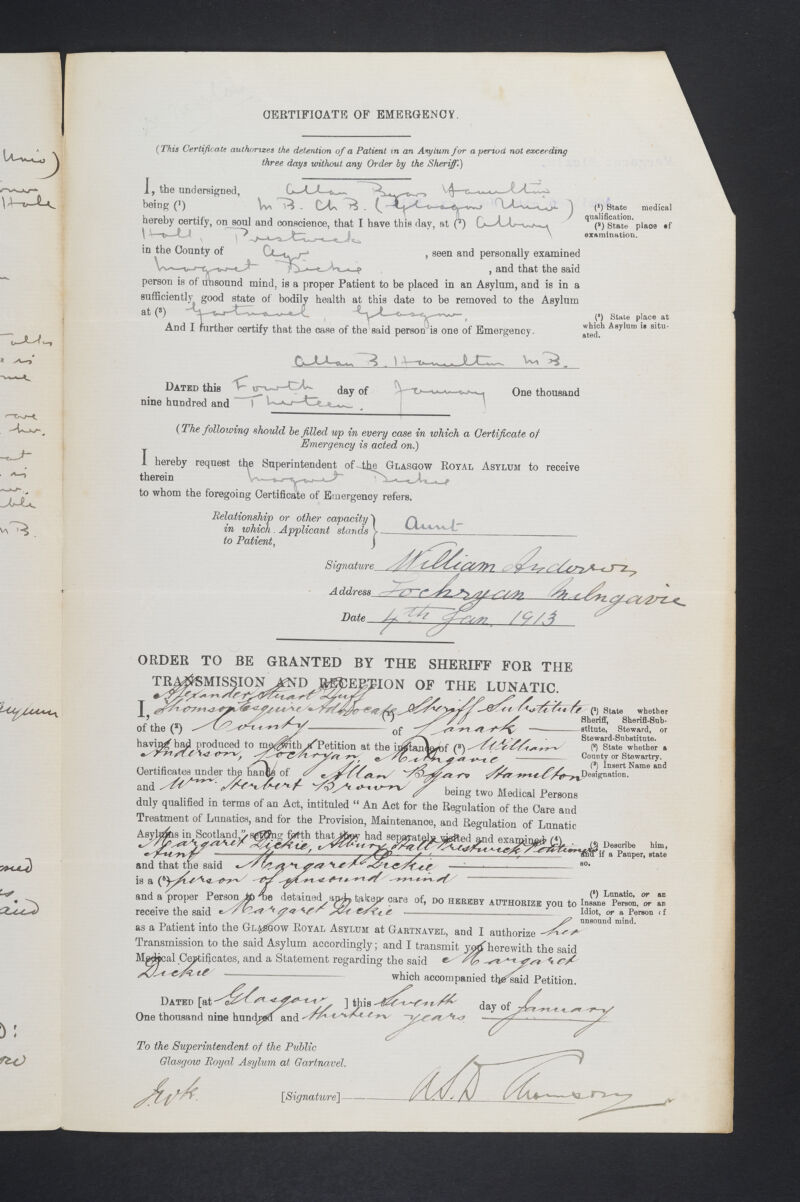 Univ)
Hall
talks
is
me
are
her.
at
is
ble
M B.
asylum
and
CERTIFICATE OF EMERGENCY.
(This Certificate authorizes the detention of a Patient in an Asylum for a period not exceeding
three days without any Order by the Sheriff.)
I, the undersigned, Allan Byars Hamilton
being (¹) M B. Ch B. (Glasgow Univ)
(¹) State medical
qualification.
hereby certify, on soul and conscience, that I have this day, at (²) Albury
(²) State place of
examination.
Hall, Prestwick
in the County of Ayr, seen and personally examined
Margaret Dickie, and that the said
person is of unsound mind, is a proper Patient to be placed in an Asylum, and is in a
sufficiently good state of bodily health at this date to be removed to the Asylum
at (³) Gartnavel, Glasgow.
(³) State place at
which Asylum is situ-
ated.
And I further certify that the case of the said person is one of Emergency.
Allan B. Hamilton M B.
DATED this Fourth day of January One thousand
nine hundred and Thirteen.
(The following should be filled up in every case in which a Certificate of
Emergency is acted on.)
I hereby request the Superintendent of the GLASGOW ROYAL ASYLUM to receive
therein Margaret Dickie
to whom the foregoing Certificate of Emergency refers.
Relationship or other capacity
in which Applicant stands
to Patient, } Aunt
Signature William Anderson
Address Lochryan Milngavie
Date 4th Jan. 1913
ORDER TO BE GRANTED BY THE SHERIFF FOR THE
TRANSMISSION AND RECEPTION OF THE LUNATIC.
Alexander Stuart Duff
I, Thomson Esquire Advocate (¹) Sheriff Substitute
(¹) State whether
Sheriff, Sheriff-Sub-
stitute, Steward, or
Steward-Substitute.
of the (²) County of Lanark
(²) State whether a
County or Stewartry.
having had produced to me with a Petition at the instance of (³) William
(³) Insert Name and
Designation.
Anderson, Lochryan, Milngavie
Certificates under the hands of Allan Byars Hamilton
and Wm. Herbert Brown being two Medical Persons
duly qualified in terms of an Act, intituled "An Act for the Regulation of the Care and
Treatment of Lunatics, and for the Provision, Maintenance, and Regulation of Lunatic
Asylums in Scotland," setting forth that they had separately visited and examined (⁴)
(⁴) Describe him,
and if a Pauper, state
so.
Margaret Dickie, Albury Hall Prestwick Petitioner's
Aunt
and that the said Margaret Dickie
is a (⁵) person of unsound mind
(⁵) Lunatic, or an
Insane Person, or an
Idiot, or a Person of
unsound mind.
and a proper Person to be detained and taken care of, DO HEREBY AUTHORIZE you to
receive the said Margaret Dickie
as a Patient into the GLASGOW ROYAL ASYLUM at GARTNAVEL, and I authorize her
Transmission to the said Asylum accordingly; and I transmit you herewith the said
Medical Certificates, and a Statement regarding the said Margaret
Dickie which accompanied the said Petition.
DATED [at Glasgow ] this Seventh day of January
One thousand nine hundred and thirteen years
To the Superintendent of the Public
Glasgow Royal Asylum at Gartnavel.
[Signature] A.S.D Thomson